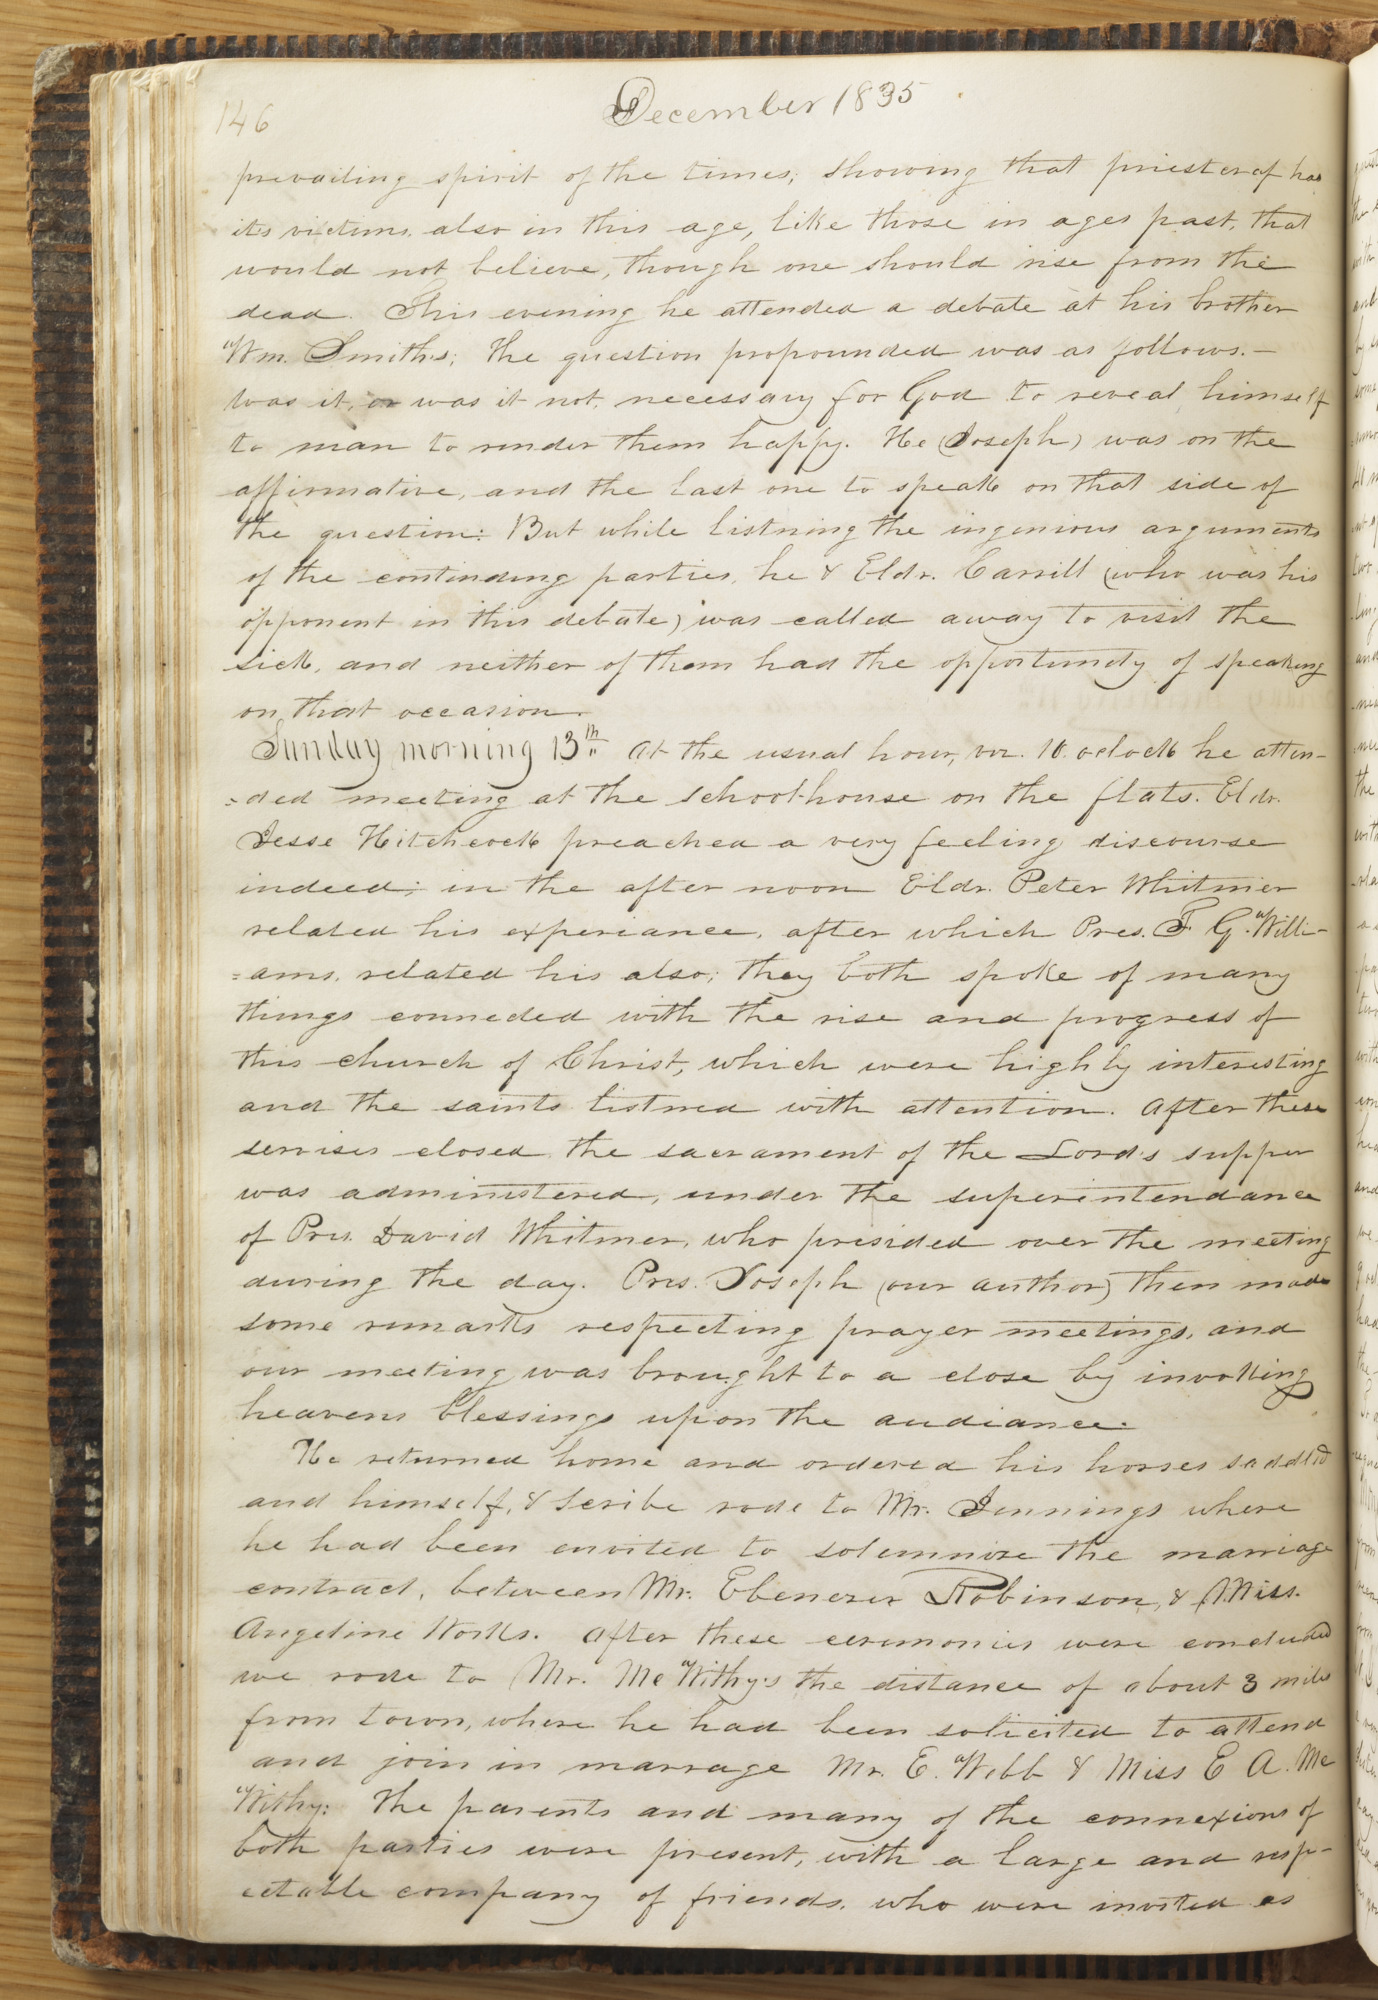 146
December 1835
prevailing spirit of the times; showing that priestcraf has
its victims, also in this age, like those in ages past, that
would not believe, though one should rise from the
dead. This evening he attended a debate at his brother
Wm. Smith's; the question propounded was as follows.—
was it, or was it not, necessary for God to reveal himself
to man to render them happy. He (Joseph) was on the
affirmative, and the last one to speak on that side of
the question: But while listning the ingenious arguments
of the contending parties, he & Eldr. Carrill (who was his
opponent in this debate) was called away to visit the
sick, and neither of them had the opportunity of speaking
on that occasion.
Sunday morning 13th at the usual hour, viz. 10. oclock he atten-
=ded meeting at the schoolhouse on the flats. Eldr.
Jesse Hitchcock preached a very feeling discourse
indeed; in the after noon Eldr. Peter Whitmer
related his experiance, after which Pres. F. G. Willi-
=ams, related his also; they both spoke of many
things connected with the rise and progress of
this church of Christ, which were highly interesting
and the saints listned with attention. After these
servises closed the sacrament of the Lord's supper
was administered, under the superintendance
of Pres. David Whitmer, who presided over the meeting
during the day. Pres. Joseph (our author) then made
some remarks respecting prayer meetings, and
our meeting was brought to a close by invoking
heavens blessings upon the audiance.
He returned home and ordered his horses saddled
and himself, & Scribe rode to Mr. Jennings where
he had been envited to solemnize the marriage
contract, between Mr. Ebenezer Robinson, & Miss.
Angeline Works. After these ceremonies were concluded
we rode to Mr. McWithy's the distance of about 3 miles
from town, where he had been solicited to attend
and join in marrage Mr. E. Webb & Miss E A. Mc
Withy: The parents and many of the connexions of
both parties were present, with a large and resp-
ectable company of friends, who were invited as